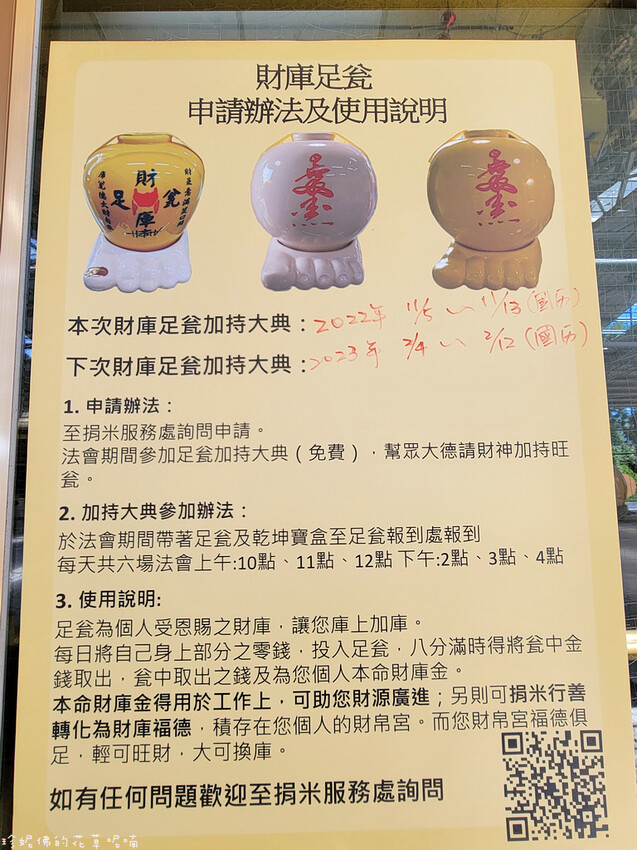 財庫足瓮
申請辦法及使用說明
財
足 瓮
庫
本次財庫足瓮加持大典：2022年 11/5 ~ 11/13 (國历)
下次財庫足瓮加持大典：2023年 2/4 ~ 2/12 (國历)
1. 申請辦法：
至捐米服務處詢問申請。
法會期間參加足瓮加持大典（免費），幫眾大德請財神加持旺
瓮。
2. 加持大典參加辦法：
於法會期間帶著足瓮及乾坤寶盒至足瓮報到處報到
每天共六場法會上午:10點、11點、12點 下午:2點、3點、4點
3. 使用說明:
足瓮為個人受恩賜之財庫，讓您庫上加庫。
每日將自己身上部分之零錢，投入足瓮，八分滿時得將瓮中金
錢取出，瓮中取出之錢及為您個人本命財庫金。
本命財庫金得用於工作上，可助您財源廣進；另則可捐米行善
轉化為財庫福德，積存在您個人的財帛宮。而您財帛宮福德俱
足，輕可旺財，大可換庫。
如有任何問題歡迎至捐米服務處詢問
珍妮佛的花草呢喃